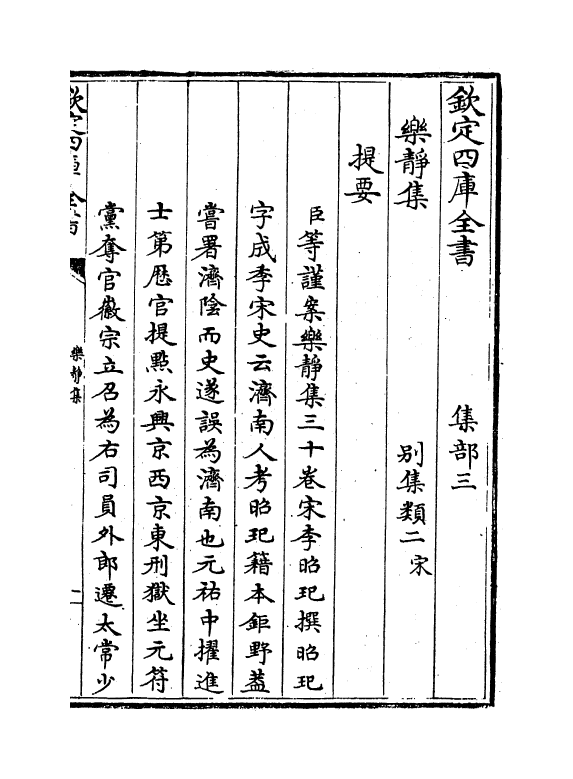 欽定四庫全書　集部三
樂靜集　别集類二宋
提要
臣等謹案樂靜集三十卷宋李昭玘撰昭玘
字成季宋史云濟南人考昭玘籍本鉅野葢
嘗署濟陰而史遂誤為濟南也元祐中擢進
士第歴官提㸃永興京西京東刑獄坐元符
黨奪官徽宗立召為右司員外郎遷太常少
欽定四庫全書
樂靜集